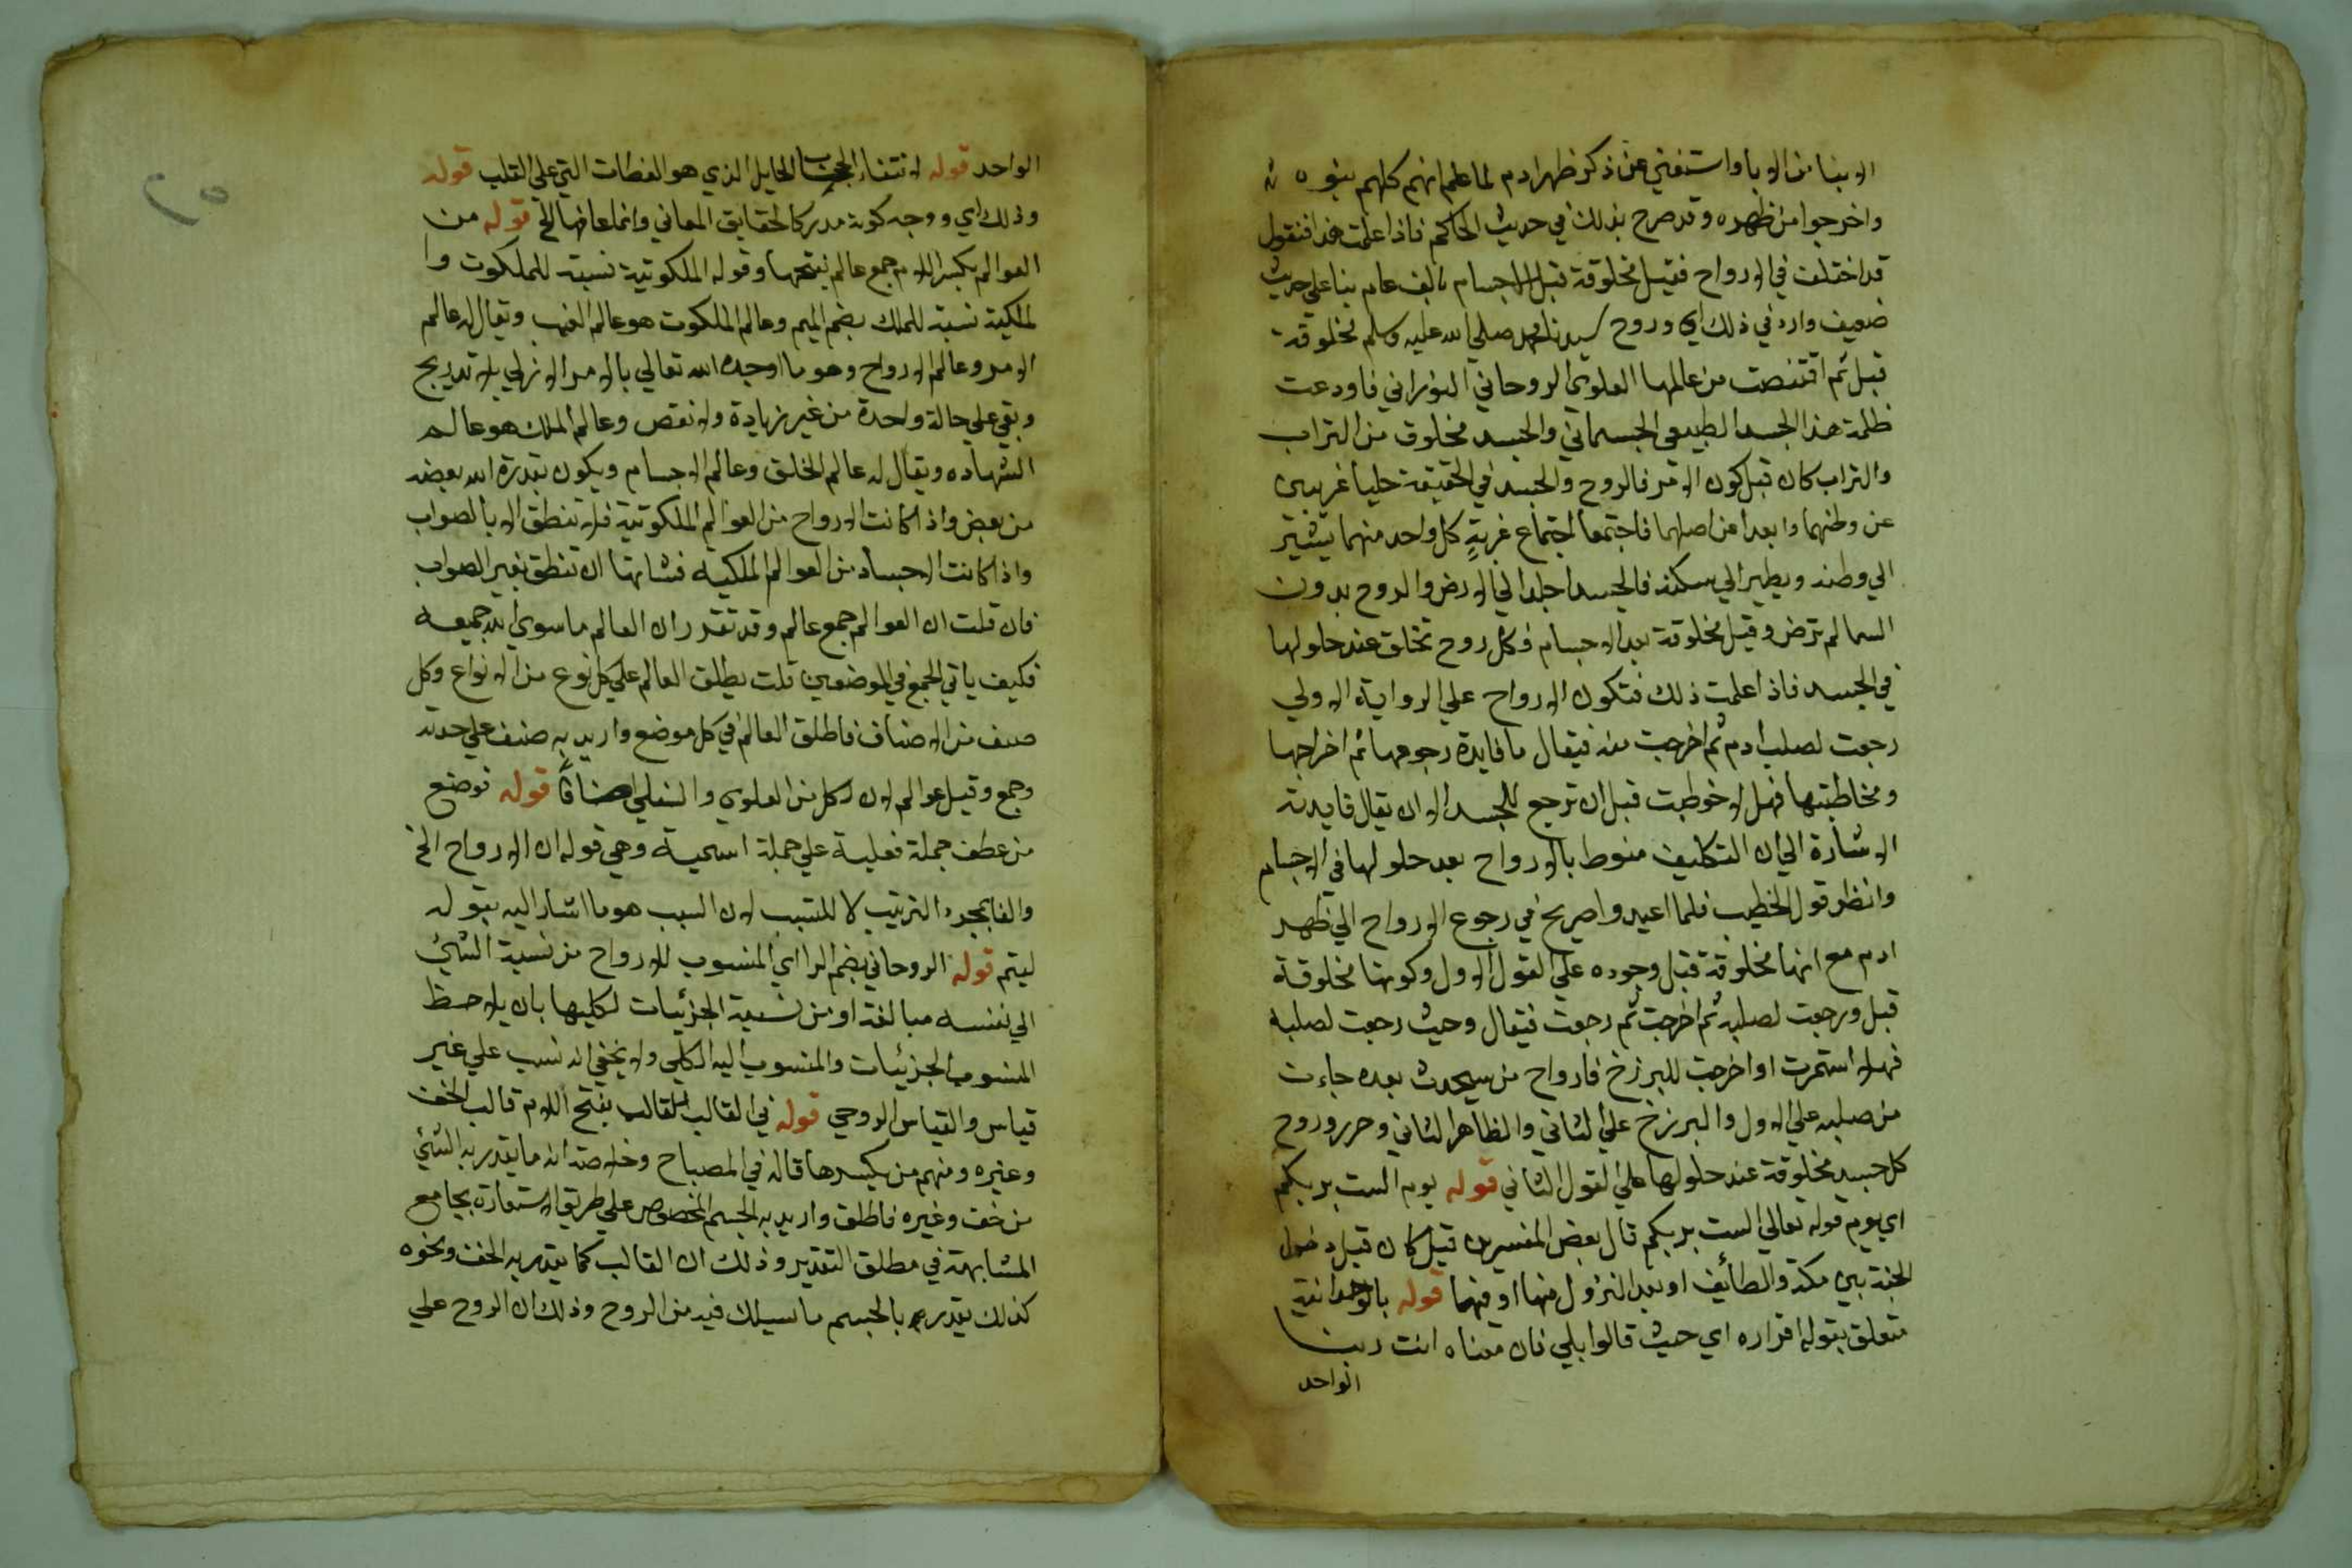 الابنا من الابا واستغني عن ذكر ظهر ادم لما علم انهم كلهم بنوه
واخرجوا من ظهره وقد صرح بذلك في حديث الحاكم فاذا علمت هذا فنقول
قد اختلف في الارواح فقيل مخلوقة قبل الاجسام بالف عام بنا علي حديث
ضعيف وارد في ذلك اي وروح سيدنا محمد صلي الله عليه وسلم مخلوقة
قبل ثم اقتنصت من عالمها العلوي الروحاني النوراني فاودعت
ظلمة هذا الجسد الطبيعي الجسماني والجسد مخلوق من التراب
والتراب كان قبل كون ادم فالروح والجسد في الحقيقة حليا غريبين
عن وطنهما وابعدا عن اصلهما فاجتمعا اجتماع غربة كل واحد منهما يشير
الي وطنه ويطير الي سكنه فالجسد اخلد الي الارض والروح بدون
السما لم ترض وقيل مخلوقة بعد الاجسام وكل روح تخلق عند حلولها
في الجسد فاذا علمت ذلك فتكون الارواح علي الرواية الاولي
رجعت لصلب ادم ثم اخرجت منه فيقال ما فايدة رجوعها ثم اخراجها
ومخاطبتها فهل لا خوطبت قبل ان ترجع للجسد الا ان يقال فايدته
الاشارة الي ان التكليف منوط بالارواح بعد حلولها في الاجسام
وانظر قول الخطيب فلما اعيدوا صريح في رجوع الارواح الي ظهر
ادم مع انها مخلوقة قبل وجوده علي القول الاول وكونها مخلوقة
قبل ورجعت لصلبه ثم اخرجت ثم رجعت فيقال وحيث رجعت لصلبه
فهل استمرت او اخرجت للبرزخ فارواح من سيحدث بعده جاءت
من صلبه علي الاول والبرزخ علي الثاني والظاهر الثاني وحرر وروح
كل جسد مخلوقة عند حلولها علي القول الثاني قوله يوم الست بربكم
اي يوم قوله تعالي الست بربكم قال بعض المفسرين قيل كان قبل دخول
الجنة بين مكة والطائف او بعد النزول منها او فيهما قوله بالوحدانية
متعلق بقوله اقراره اي حيث قالوا بلي فان معناه انت ربنا
الواحد
الواحد قوله لانتفاء الحجب الحايل الذي هو الغطات التي علي القلب قوله
وذلك اي ووجه كونه مدركا لحقايق المعاني وانما عانها الخ قوله من
العوالم بكسر اللام جمع عالم بفتحها وقوله الملكوتية نسبة للملكوت وا
لملكية نسبة للملك بضم الميم وعالم الملكوت هو عالم الغيب ويقال له عالم
الامر وعالم الارواح وهو ما اوجده الله تعالي بالامر الازلي بلا تدريج
وبقي علي حالة واحدة من غير زيادة ولا نقص وعالم الملك هو عالم
الشهاده ويقال له عالم الخلق وعالم الاجسام ويكون بقدرة الله بعضه
من بعض واذا كانت الارواح من العوالم الملكوتية فلا تنطق الا بالصواب
واذا كانت الاجساد من العوالم الملكيه فشانها ان تنطق بغير الصواب
فان قلت ان العوالم جمع عالم وقد تقدر ان العالم ما سوي الله جميعه
فكيف ياتي الجمع في الموضعين قلت يطلق العالم علي كل نوع من الانواع وكل
صنف من الاصناف فاطلق العالم في كل موضع واريد به صنف علي حدته
وجمع وقيل عوالم لان لكل من العلوي والسفلي اصنافا قوله فوضع
من عطف جملة فعلية علي جملة اسمية وهي قوله ان الارواح الخ
والفا لمجرد الترتيب لا للسبب لان السبب هو ما اشار اليه بقوله
ليتم قوله الروحاني بضم الرا اي المنسوب للارواح من نسبة الشيئ
الي نفسه مبالغة او من نسبة الجزئيات لكليها بان يلاحظ
المنسوب الجزئيات والمنسوب اليه الكلي ولا يخفي انه نسب علي غير
قياس والقياس الروحي قوله في القالب القالب بفتح اللام قالب الخف
وغيره ومنهم من يكسرها قاله في المصباح وخلاصته انه ما يقدر به الشئ
من خف وغيره فاطلق واريد به الجسم المخصوص علي طريق الاستعارة بجامع
المشابهة في مطلق التقدير وذلك ان القالب كما يقدر به الخف ونحوه
كذلك يقدر بالجسم ما سيسلك فيه من الروح وذلك ان الروح علي